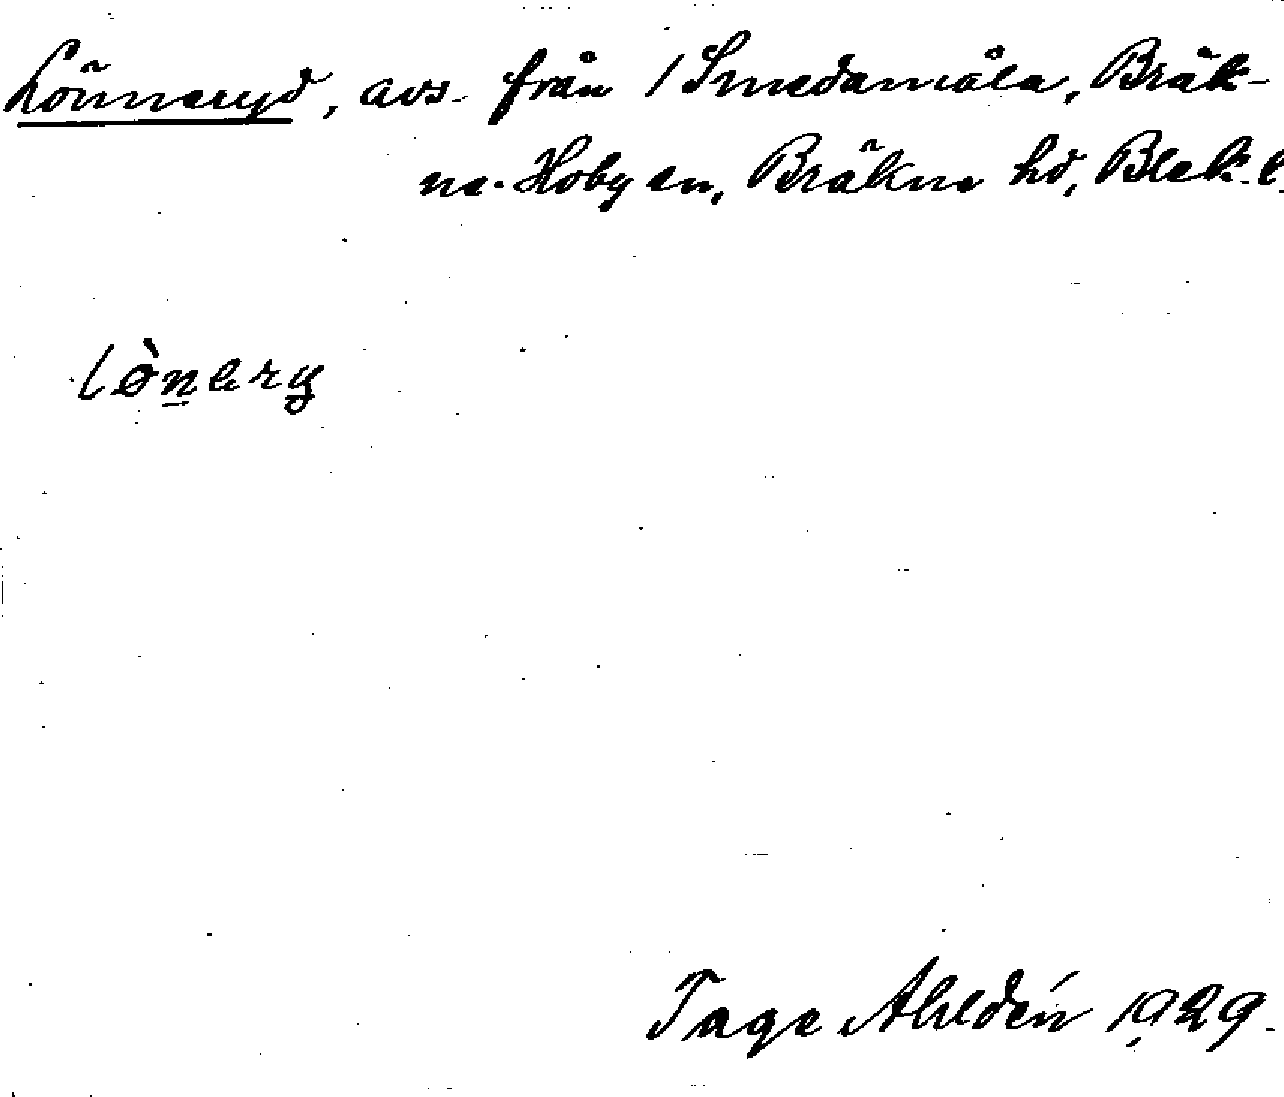 Lönneryd, avs. från 1 Smedamåla, Bräk-
ne-Hoby sn, Bräkne hd, Blek. l.
lø̀nery
Tage Ahldén 1929.